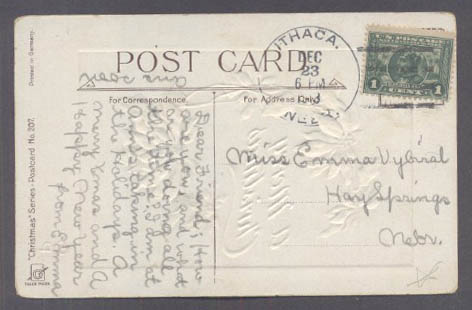 POST CARD
For Correspondence.
For Address Only.
ITHACA.
DEC
23
6 PM
NEBR.
1 CENT 1
Miss Emma Vybiral
Hay Springs
Nebr.
Dear Friend; How
are you, and what
are you doing all
the time? I am at
home taking in
the Holidays. A
merry Xmas and A
Happy New Year
from Emma
Printed in Germany.
"Christmas" Series - Postcard No. 207.
TRADE MARK